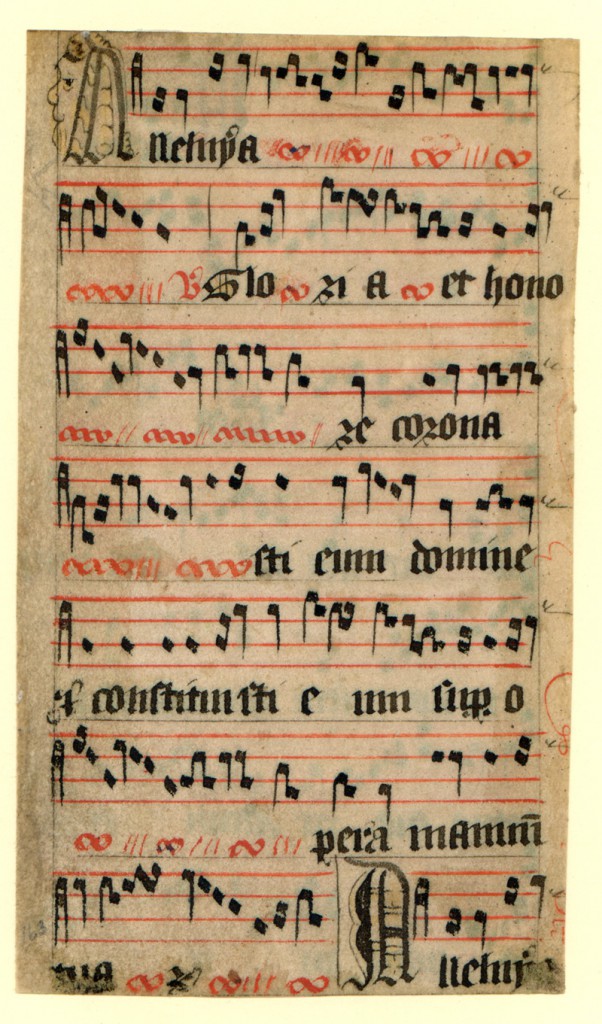 Alleluya
℣ Glo ri a et hono
re corona
sti eum domine
et constituisti e um sup o
pera manuū
tua
Alleluy